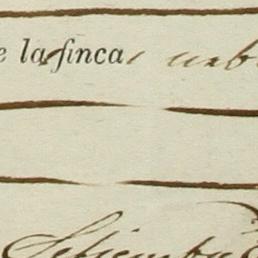 e la finca urb
Setiembre